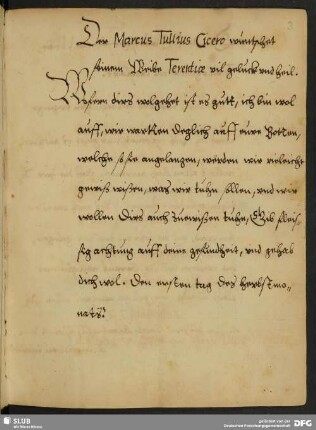 Der Marcus Tullius Cicero wünschet
seinem Weibe Terentiæ vil gelück und heil.
Wofern dirs wolgehet ist es gutt, ich bin wol
auff, wir wartten deglich auff eure Botten,
welche so sie angelangen, werden wir vieleicht
gewiß wißen, was wir tuhn sollen, und wir
wollen dirs auch zuewißen tuhn, Gib fleis-
sig achtung auff deine gesundheit, und gehab
dich wol. Den ersten tag des herbstmo-
nats.
SLUB
Wir führen Wissen.
gefördert von der
Deutschen Forschungsgemeinschaft
DFG